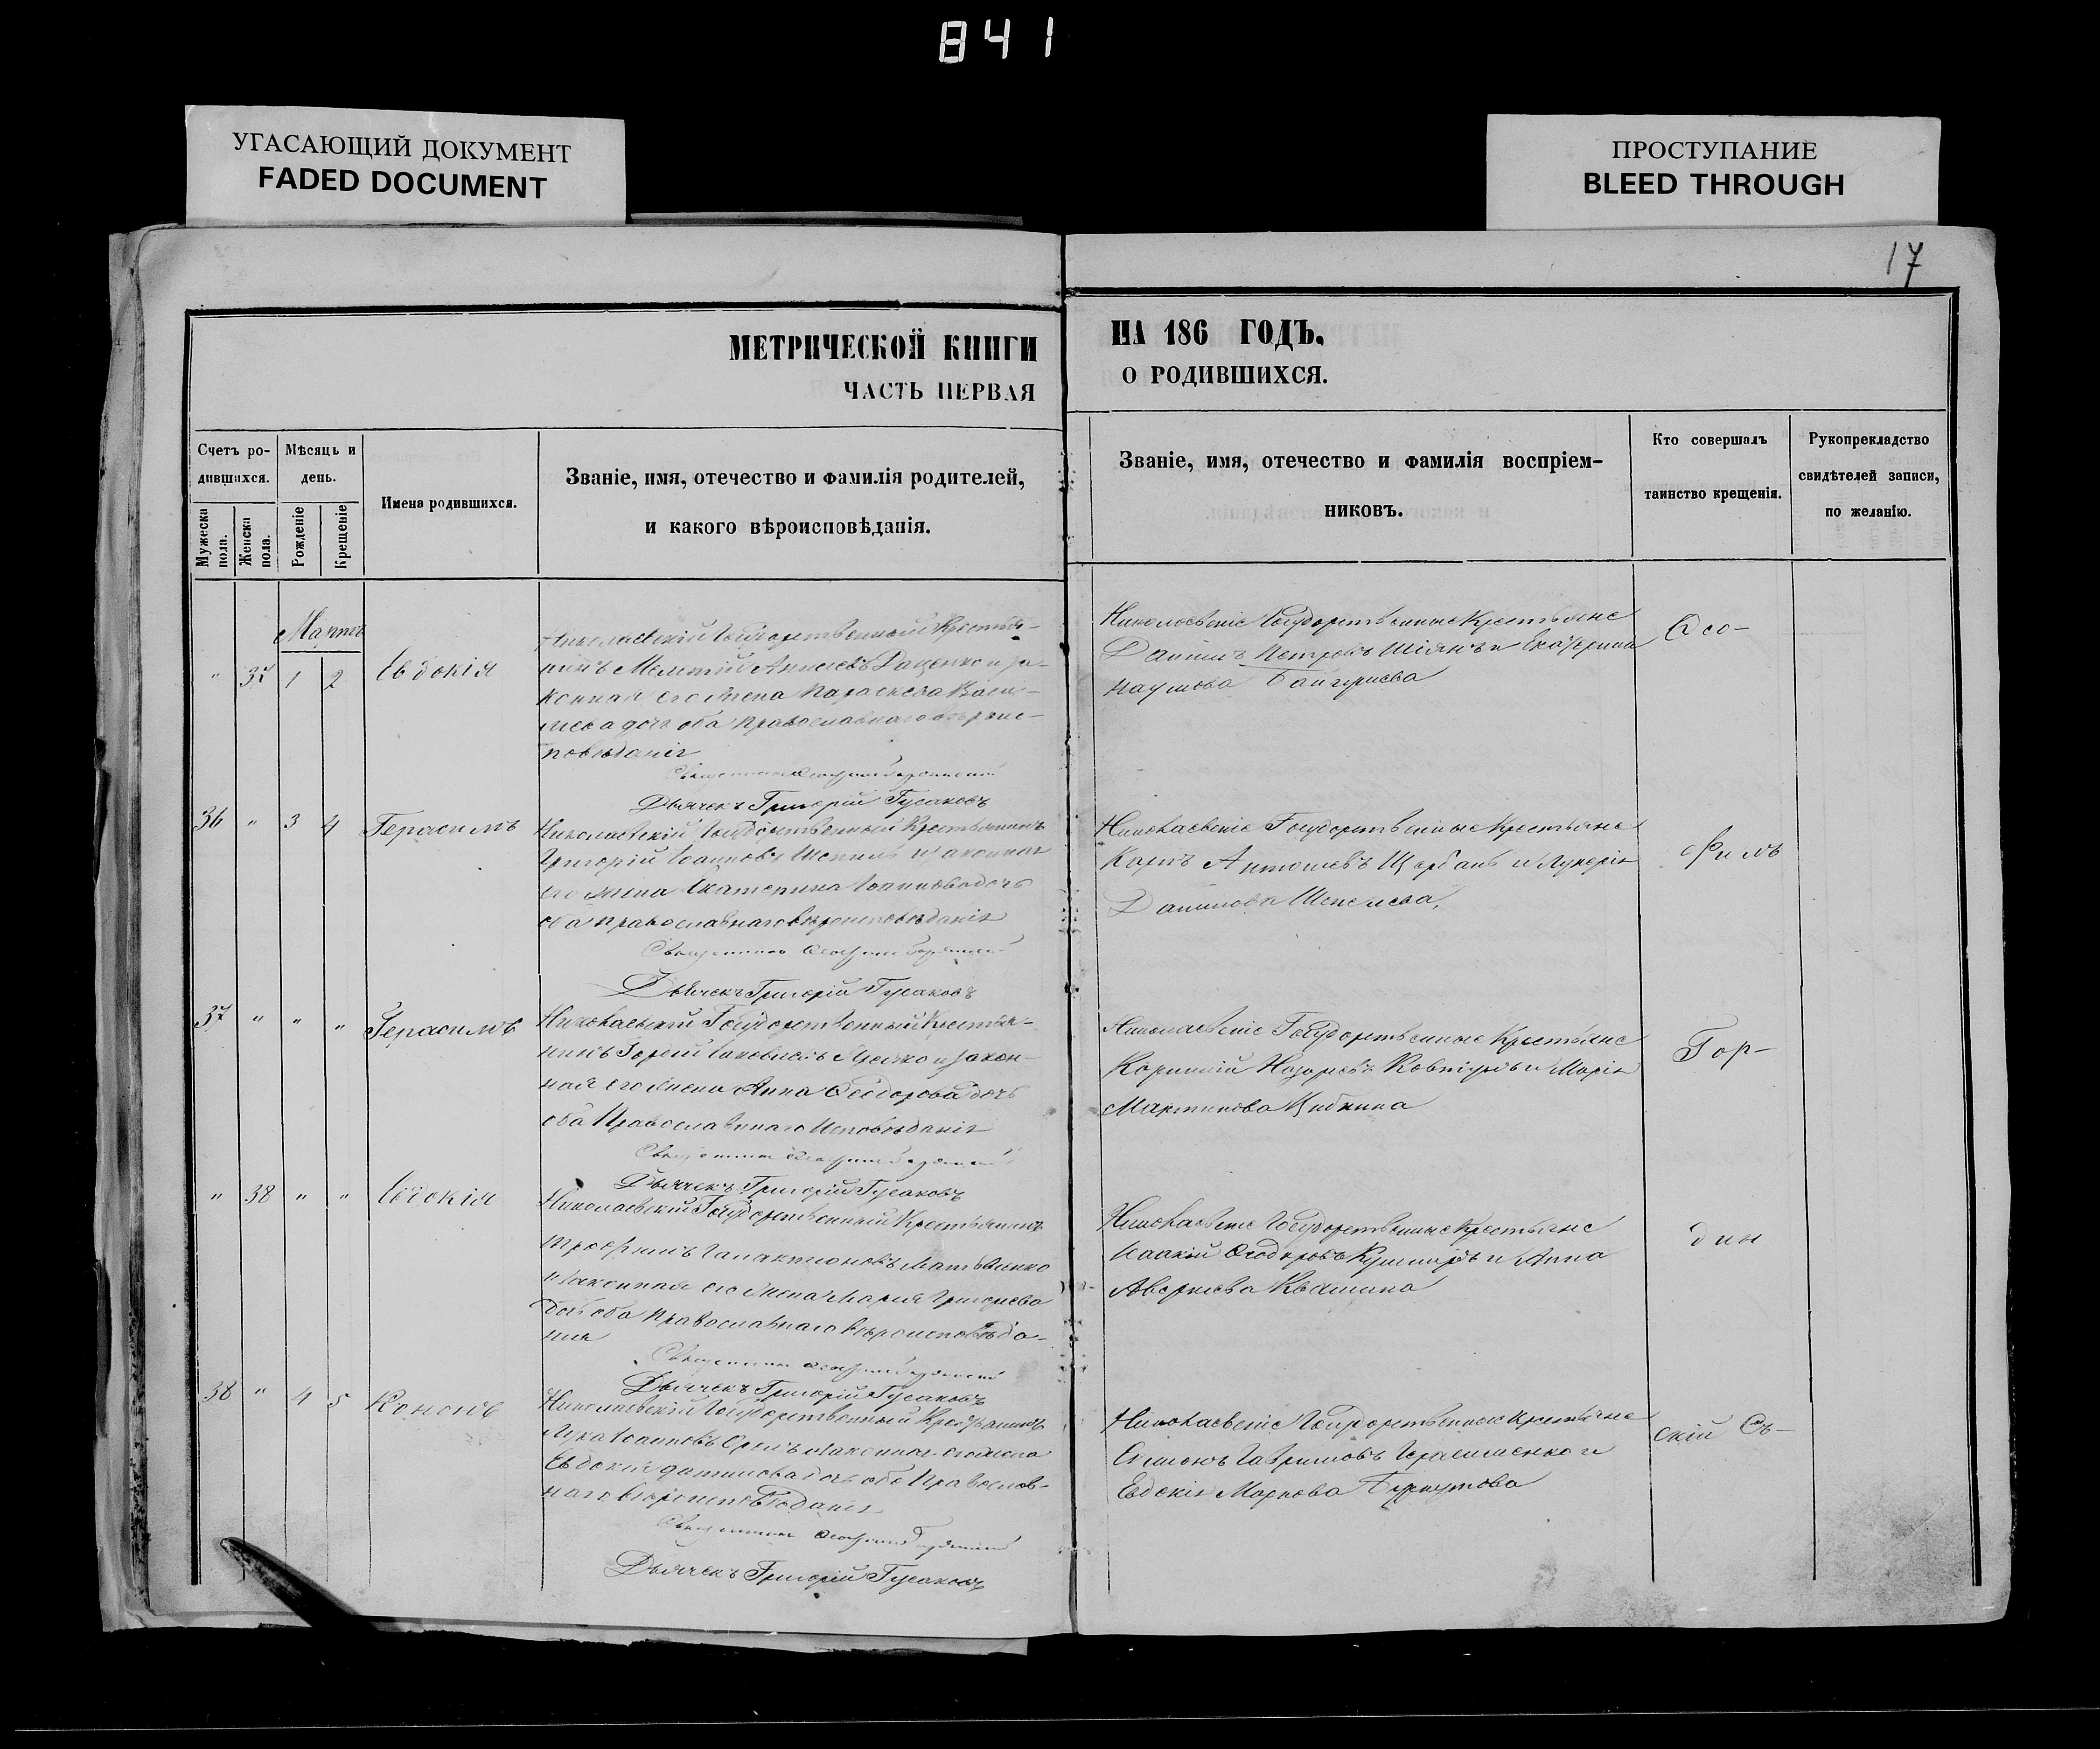 841
УГАСАЮЩИЙ ДОКУМЕНТ
FADED DOCUMENT
ПРОСТУПАНИЕ
BLEED THROUGH
17
МЕТРИЧЕСКОЙ КНИГИ
ЧАСТЬ ПЕРВАЯ
НА 186 ГОДЪ.
О РОДИВШИХСЯ.
Счетъ ро-
дившихся.
Мужеска
пола.
Женска
пола.
Мѣсяцъ и
день.
Рожденіе
Крещеніе
Имена родившихся.
Званіе, имя, отечество и фамилія родителей,
и какого вѣроисповѣданія.
Званіе, имя, отечество и фамилія воспріем-
никовъ.
Кто совершалъ
таинство крещенія.
Рукоприкладство
свидѣтелей записи,
по желанію.
Марта
" 37 1 2 Евдокія
Николаевскій Государственный Крестья-
нинъ Мелетій Даценко и за-
конная его жена Параскева Васи-
лиева дочь оба православнаго вѣроис-
повѣданія
Священникъ
Дьячекъ Григорій Гусаковъ
Николаевскіе Государственные Крестьяне
Даніилъ Петровъ Шіянъ и Екатерина
Наумова
Ѳео-
36 " 3 4 Герасимъ
Николаевскій Государственный Крестьянинъ
Григорій Іоанновъ и законная
его жена Екатерина Іоаннова дочь
оба православнаго вѣроисповѣданія
Священникъ
Дьячекъ Григорій Гусаковъ
Николаевскіе Государственные Крестьяне
Карпъ Щербань и Лукерія
Даніилова
филъ
37 " " " Герасимъ
Николаевскій Государственный Крестья-
нинъ и закон-
ная его жена Анна Ѳеодорова дочь
оба Православнаго Исповѣданія
Священникъ
Дьячекъ Григорій Гусаковъ
Николаевскіе Государственные Крестьяне
Корнилій Назаревъ и Марія
Мартинова
Гор-
" 38 " " Евдокія
Николаевскій Государственный Крестьянинъ
Трофимъ Галактіоновъ Матвіенко
и законная его жена Марія Григориева
дочь оба Православнаго вѣроисповѣда-
нія
Священникъ
Дьячекъ Григорій Гусаковъ
Николаевскіе Государственные Крестьяне
Исакій Ѳеодоровъ и Анна
Аверкиева Квашина
дин
38 " 4 5 Кононъ
Николаевскій Государственный Крестьянинъ
Лука Іоанновъ и законная его жена
Евдокія дочь оба Православ-
наго Вѣроисповѣданія
Священникъ
Дьячекъ Григорій Гусаковъ
Николаевскіе Государственные Крестьяне
Гавриловъ Герасименко и
Евдокія Маркова
скій Съ-